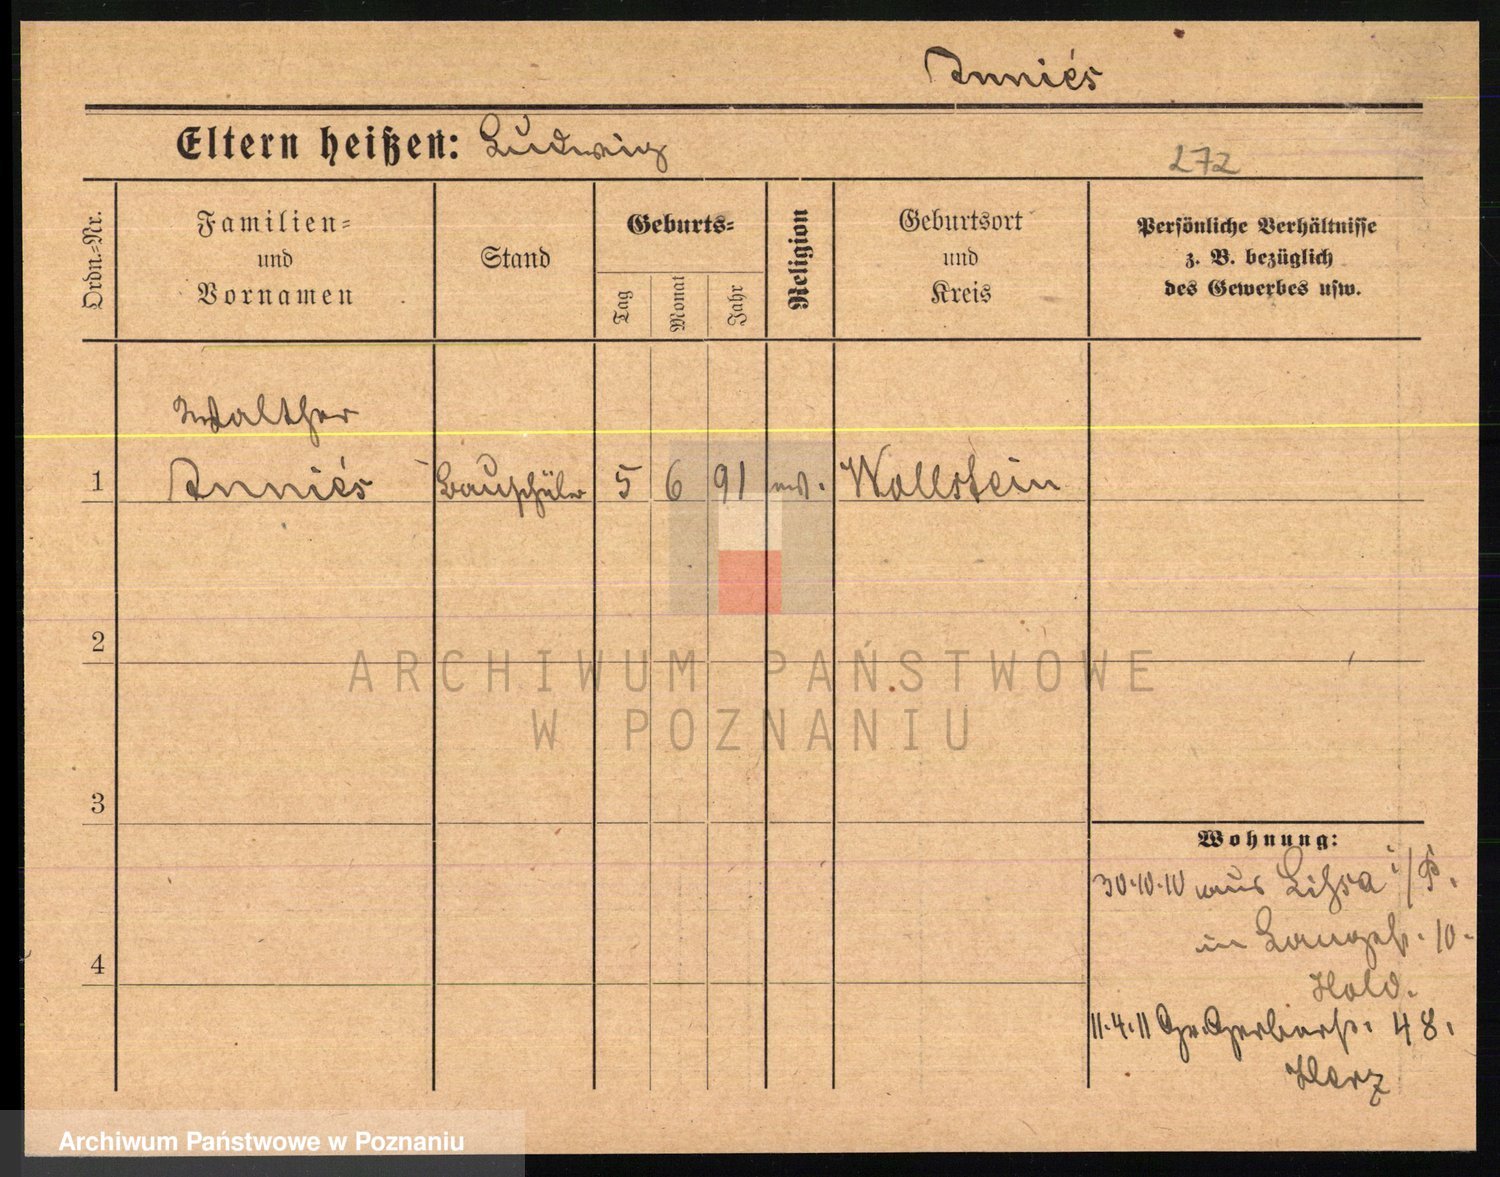 Anniés
Eltern heißen: Ludwig
272
Ordn.-Nr.
Familien-
und
Vornamen
Stand
Geburts-
Tag
Monat
Jahr
Religion
Geburtsort
und
Kreis
Persönliche Verhältnisse
z. B. bezüglich
des Gewerbes usw.
Walther
1 Anniés Bauschüler 5 6 91 Wollstein
2
ARCHIWUM PAŃSTWOWE
W POZNANIU
3
Wohnung:
30.10.10 aus Lissa i/P.
in Langestr. 10.
11.4.11 Gr. Gerberstr. 48.
Herz
4
Archiwum Państwowe w Poznaniu